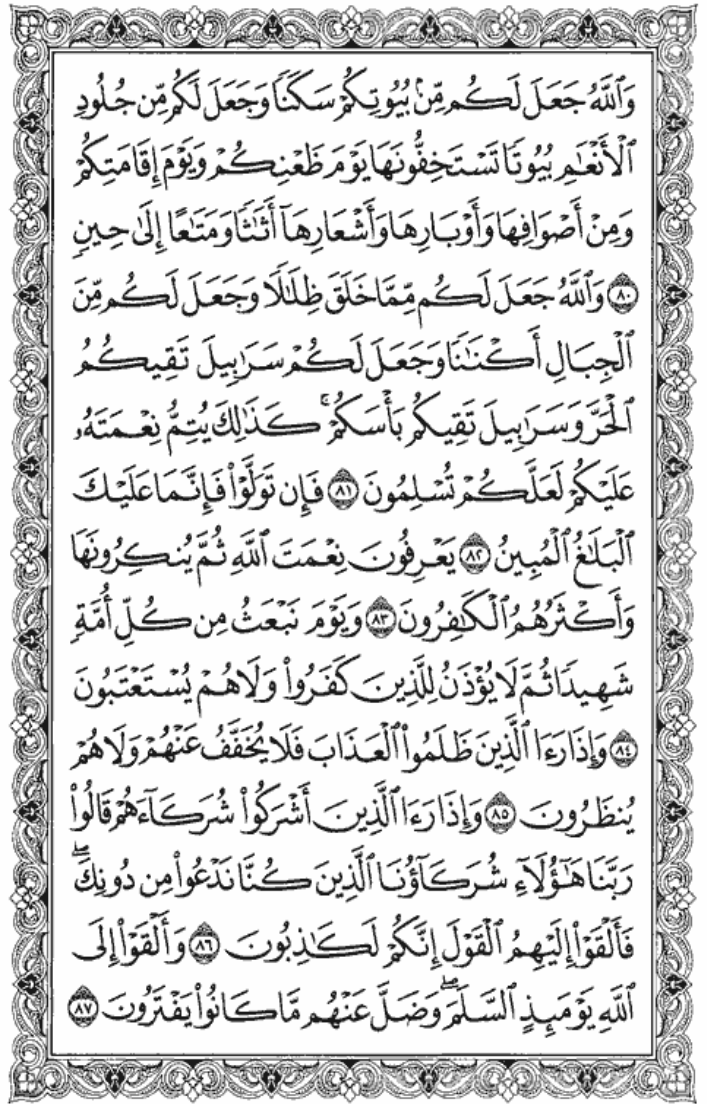 وَٱللَّهُ جَعَلَ لَكُم مِّنۢ بُيُوتِكُمْ سَكَنًا وَجَعَلَ لَكُم مِّن جُلُودِ
ٱلْأَنْعَٰمِ بُيُوتًا تَسْتَخِفُّونَهَا يَوْمَ ظَعْنِكُمْ وَيَوْمَ إِقَامَتِكُمْ
وَمِنْ أَصْوَافِهَا وَأَوْبَارِهَا وَأَشْعَارِهَآ أَثَٰثًا وَمَتَٰعًا إِلَىٰ حِينٍ
٨٠ وَٱللَّهُ جَعَلَ لَكُم مِّمَّا خَلَقَ ظِلَٰلًا وَجَعَلَ لَكُم مِّنَ
ٱلْجِبَالِ أَكْنَٰنًا وَجَعَلَ لَكُمْ سَرَٰبِيلَ تَقِيكُمُ
ٱلْحَرَّ وَسَرَٰبِيلَ تَقِيكُم بَأْسَكُمْ ۚ كَذَٰلِكَ يُتِمُّ نِعْمَتَهُۥ
عَلَيْكُمْ لَعَلَّكُمْ تُسْلِمُونَ ٨١ فَإِن تَوَلَّوْا۟ فَإِنَّمَا عَلَيْكَ
ٱلْبَلَٰغُ ٱلْمُبِينُ ٨٢ يَعْرِفُونَ نِعْمَتَ ٱللَّهِ ثُمَّ يُنكِرُونَهَا
وَأَكْثَرُهُمُ ٱلْكَٰفِرُونَ ٨٣ وَيَوْمَ نَبْعَثُ مِن كُلِّ أُمَّةٍ
شَهِيدًا ثُمَّ لَا يُؤْذَنُ لِلَّذِينَ كَفَرُوا۟ وَلَا هُمْ يُسْتَعْتَبُونَ
٨٤ وَإِذَا رَءَا ٱلَّذِينَ ظَلَمُوا۟ ٱلْعَذَابَ فَلَا يُخَفَّفُ عَنْهُمْ وَلَا هُمْ
يُنظَرُونَ ٨٥ وَإِذَا رَءَا ٱلَّذِينَ أَشْرَكُوا۟ شُرَكَآءَهُمْ قَالُوا۟
رَبَّنَا هَٰٓؤُلَآءِ شُرَكَآؤُنَا ٱلَّذِينَ كُنَّا نَدْعُوا۟ مِن دُونِكَ ۖ
فَأَلْقَوْا۟ إِلَيْهِمُ ٱلْقَوْلَ إِنَّكُمْ لَكَٰذِبُونَ ٨٦ وَأَلْقَوْا۟ إِلَى
ٱللَّهِ يَوْمَئِذٍ ٱلسَّلَمَ ۖ وَضَلَّ عَنْهُم مَّا كَانُوا۟ يَفْتَرُونَ ٨٧